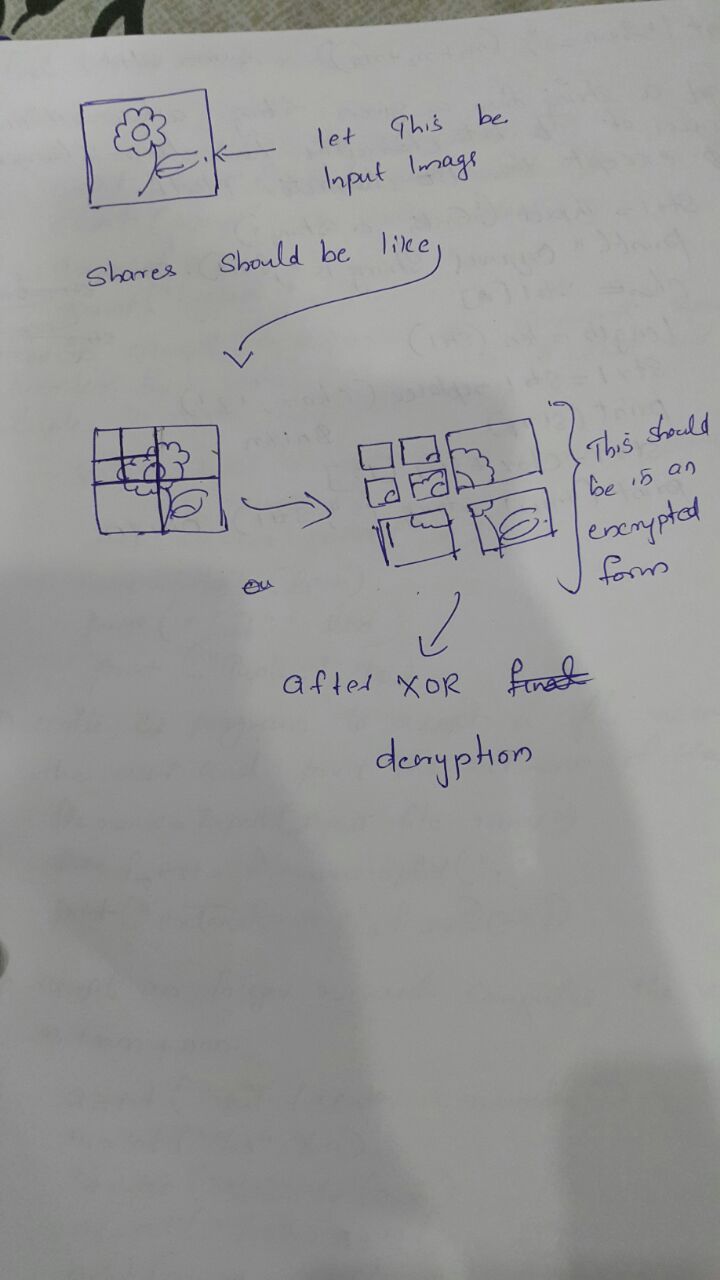 let This be
Input Image
Shares should be like
This should
be in an
encrypted
form
After XOR
decryption